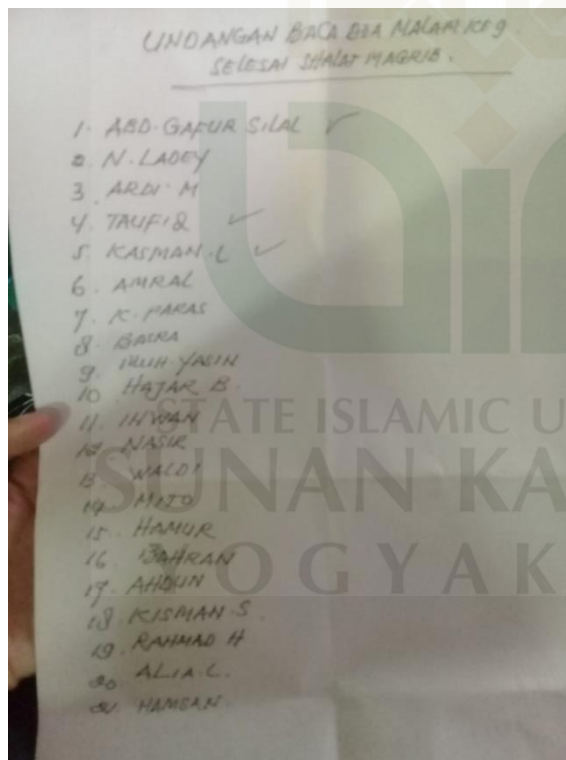 UNDANGAN BACA DOA MALAM KE 9.
SELESAI SHALAT MAGRIB.
1. ABD. GAFUR SILAL ✓
2. N. LADEY
3. ARDI. M
4. TAUFIQ ✓
5. KASMAN. L ✓
6. AMRAL
7. K. PARAS
8. BASRA
9. MUH. YASIN
10 HAJAR B.
11. IHWAN
12 NASIR
13 WALDI
14. MITO
15. HAMUR
16. BAHRAN
17. AHDUN
18. KISMAN. S.
19. RAHMAD H
20 ALIA. L.
21. HAMSAN.
STATE ISLAMIC U
SUNAN KA
YOGYAK